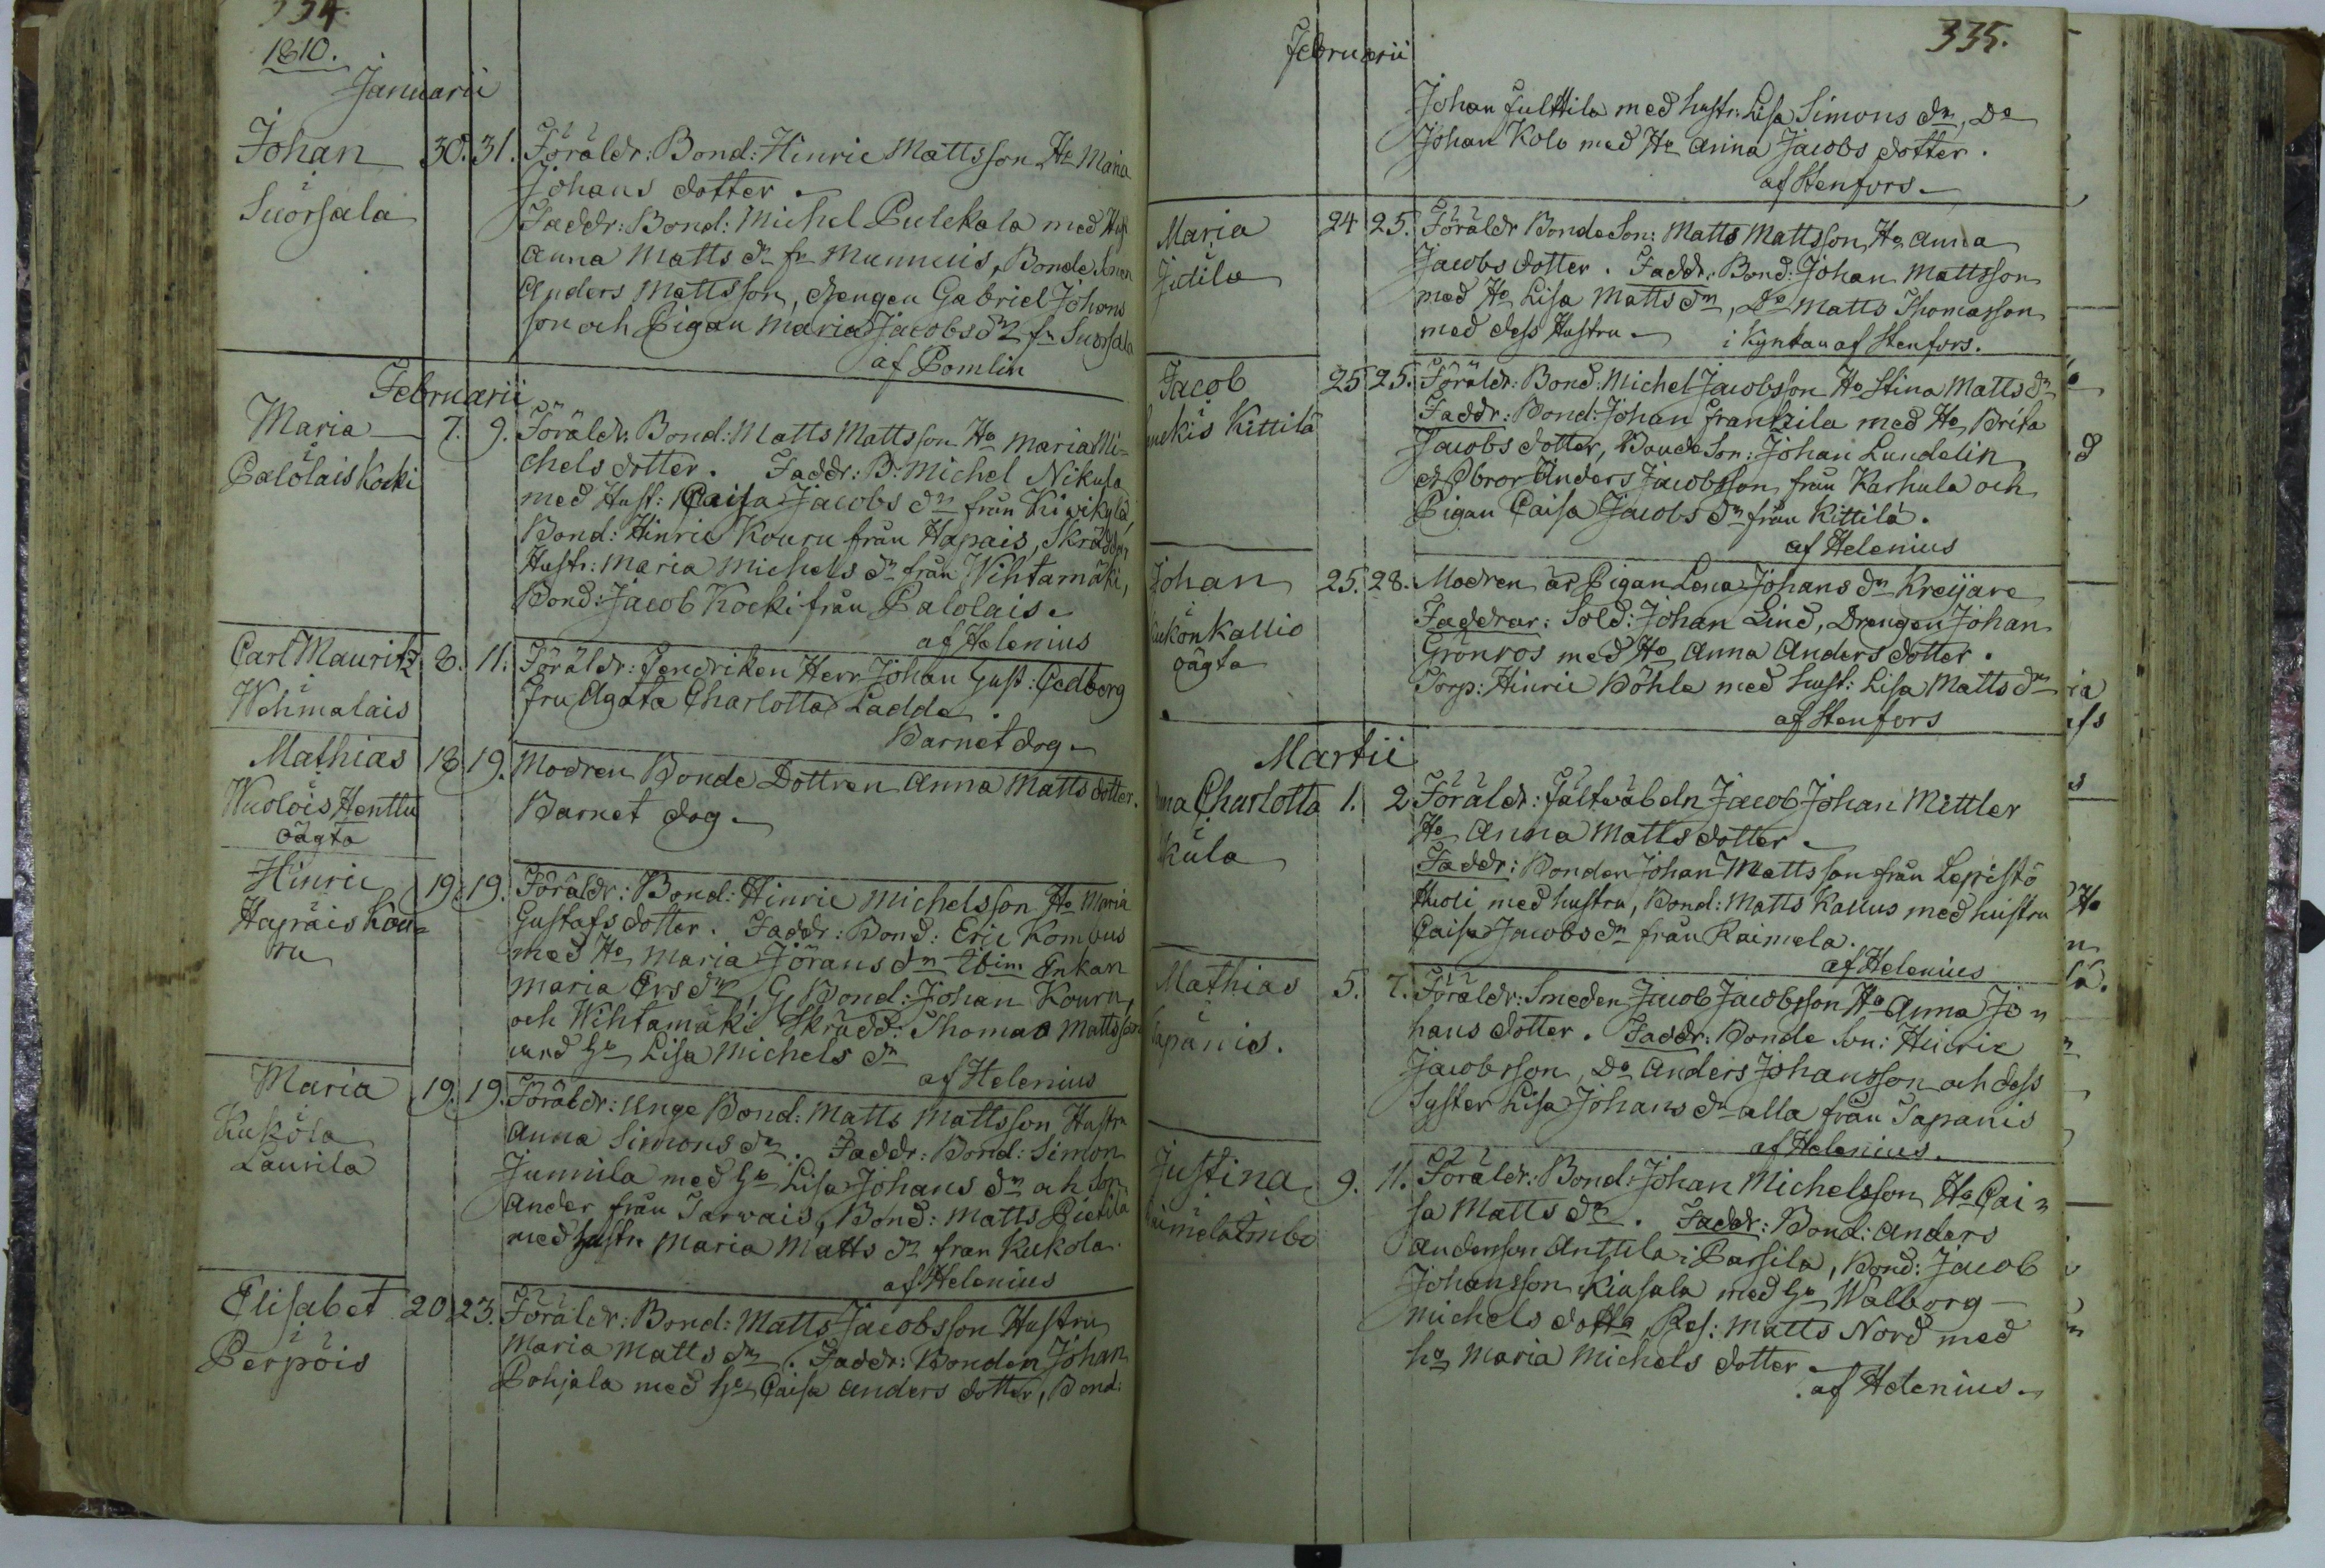 334.
1810.
Januarii
Johan 30. 31. Föräldr: Bond: Hinric Mattsson Ho Maria
Johans dotter.
Suorsala
Faddr: Bond: Michel Pulckala med Hust
Anna Matts dr fr Munneis, Bonde Sonen
Anders Mattsson, drengen Gabriel Johans
son och Pigan Maria Jacobs dr fr Suorsala
af Pomlin
Februarii
Maria 7. 9. Föräldr: Bond: Matts Mattsson Ho Maria Mi-
chels dotter. Faddr: B: Michel Nikula
Palolais Kocki
med Hust: Caisa Jacobs dr från Kiwikylä
Bond: Hinric Kouru från Hapais, Skrädd
Hustr: Maria Michels dr från Wihtamäki,
Bond: Jacob Kocki från Palolais.
af Helenius
Carl Mauritz 8. 11. Föräldr: Fendriken Herr Johan Gust: Cedborg
Wehmalais
fru Agata Charlotta Ladda.
Barnet dog.
Mathias 18 19. Modren Bonde Dottren Anna Matts dotter.
Wuolois Henttu
oägta
Barnet dog.
Hinric 19. 19. Föräldr: Bond: Hinric Michelsson Ho Maria
Hapais Kou-
ru
Gustafs dotter. Faddr: Bond: Eric Kombus
med Ho Maria Jörans dr ibim Enkan
Maria Ers dr, G Bond: Johan Kouru,
och Wihtamäki Skrädd: Thomas Mattsson
med Ho Lisa Michels dr
af Helenius
Maria 19. 19. Föräldr: Unge Bond: Matts Mattsson Hustr
Kukola
Laurila
Anna Simons dr. Faddr: Bond: Simon
Jumila med Ho Lisa Johans dr och Son
Ander från Tarvais, Bond: Matts Pietilä
med hustr Maria Matts dr från Kukola.
af Helenius
Elisabet 20 23. Föräldr: Bond: Matts Jacobsson Hustru
Perpöis
Maria Matts dr. Faddr: Bonden Johan
Pohjala med Ho Caisa Anders dotter, Bond:
335.
Februarii
Johan Fulttila med hustr: Lisa Simons dr, Do
Johan Kolo med Ho Anna Jacobs dotter.
af Stenfors.
Maria 24 25. Föräldr Bonde Son: Matts Mattsson, Ho Anna
Jutila
Jacobs dotter. Faddr: Bond: Johan Mattsson
med Ho Lisa Matts dr, Do Matts Thomasson
med dess Hustru. i Kyrkan af Stenfors.
Jacob 25 25. Föräldr: Bond: Michel Jacobson Ho Stina Matts dr
Kittilä
Faddr: Bond: Johan Frankila med Ho Brita
Jacobs dotter, Bonde Son: Johan Lundelin,
dess bror Anders Jacobsson från Karhula och
Pigan Caisa Jacobs dr från Kittilä.
af Helenius
Johan 25. 28. Modren är Pigan Lena Johans dr Kreijare
Kukonkallio
oägta
Faddrar: Sold: Johan Lind, Drengen Johan
Grönros med Ho Anna Anders dotter.
Torp: Hinric Böhle med hust: Lisa Matts dr
af Stenfors
Martii
Charlotta 1. 2 Föräldr: Fältwäbeln Jacob Johan Mittler
Ho Anna Matts dotter.
Faddr: Bonden Johan Mattsson från Lepistö
med hustru, Bond: Matts Kallus med huistru
Caisa Jacobs dr från Raimela.
af Helenius
Mathias 5. 7. Föräldr: Smeden Jacob Jacobsson Ho Anna Jo-
Tapanis.
hans dotter. Faddr: Bonde Son: Hinric
Jacobsson, Do Anders Johansson och dess
Syster Lisa Johans dr alla från Tapanis
af Helenius.
Justina 9. 11. Föräldr: Bond: Johan Michelsson Ho Cai-
sa Matts dr. Faddr: Bond: Anders
Andersson Anttila i Parsila, Bond: Jacob
Johansson Kiasala med Ho Walborg
Michels dotter, Res: Matts Nord med
ho Maria Michels dotter.
af Helenius.